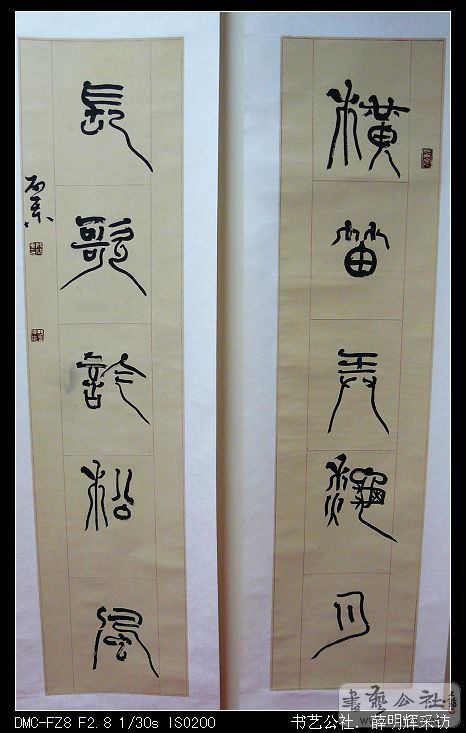 橫笛弄龝月
長歌訡松風
書藝公社
DMC-FZ8 F2.8 1/30s ISO200 书艺公社.薛明辉采访